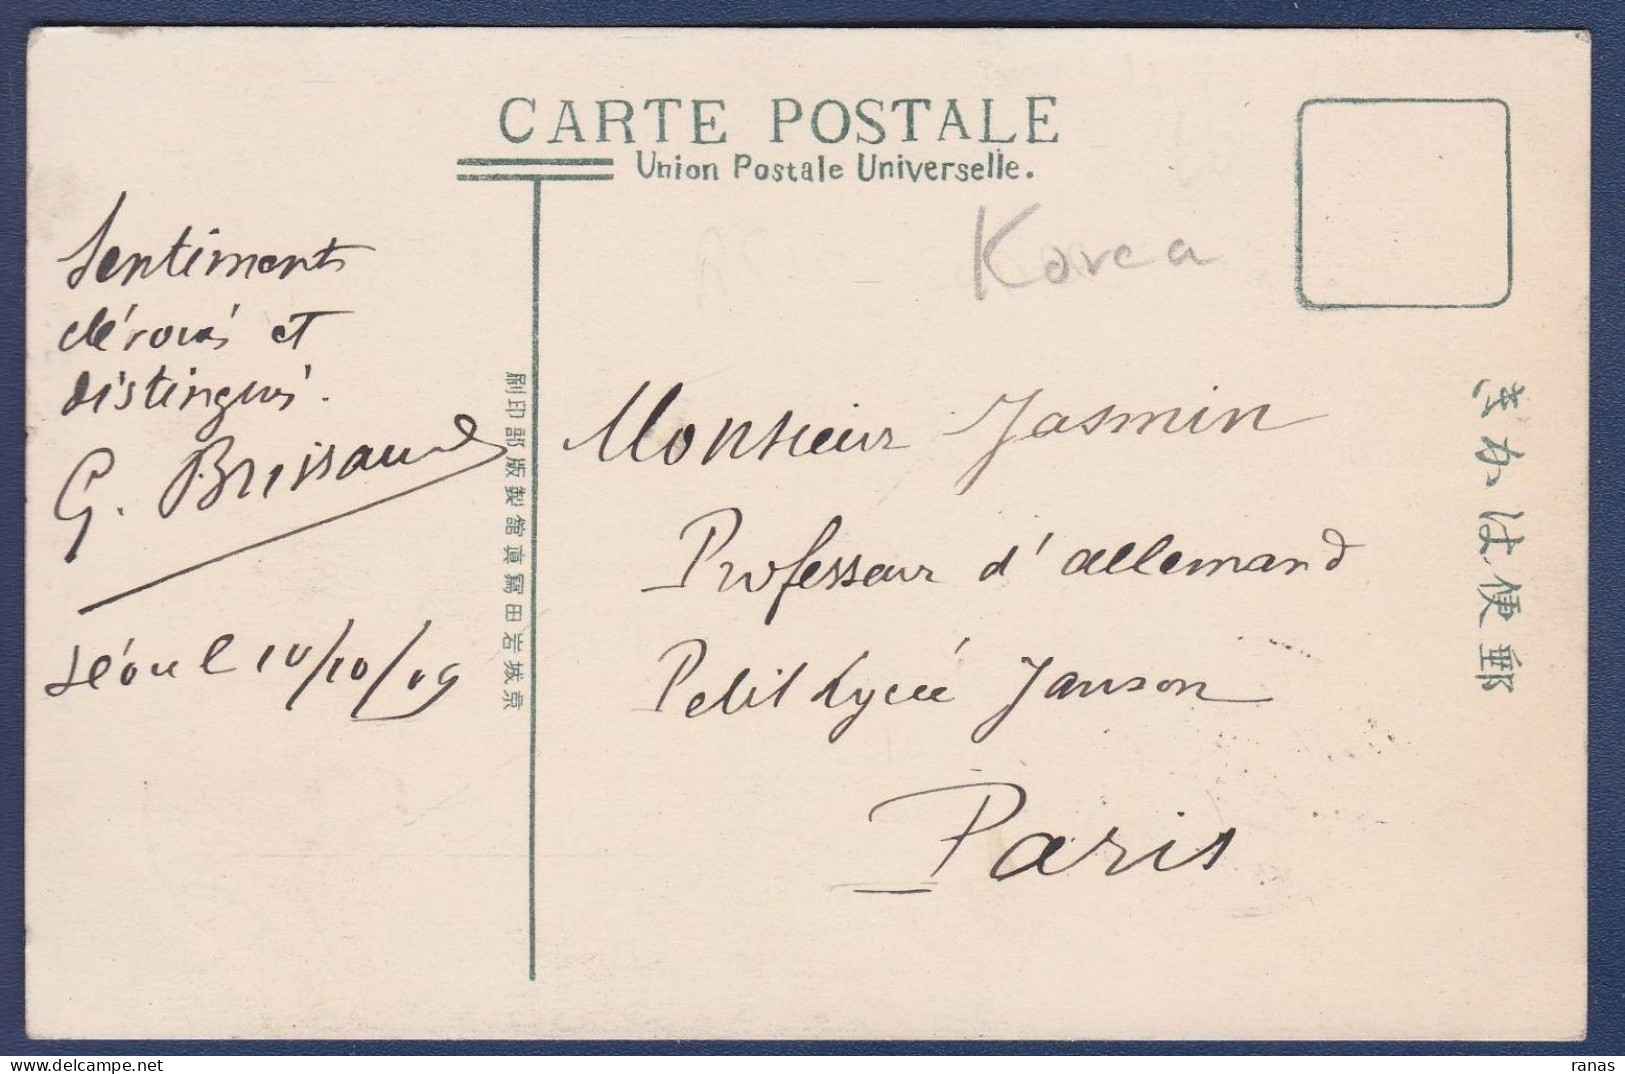 CARTE POSTALE
Union Postale Universelle.
Korea
Sentiments
dévoués et
distingués.
G. Brissaud
Séoul 10/10/09
京城岩田寫眞館製版部印刷
Monsieur Jasmin
Professeur d'allemand
Petit Lycée Janson
Paris
郵便はかき
ranas